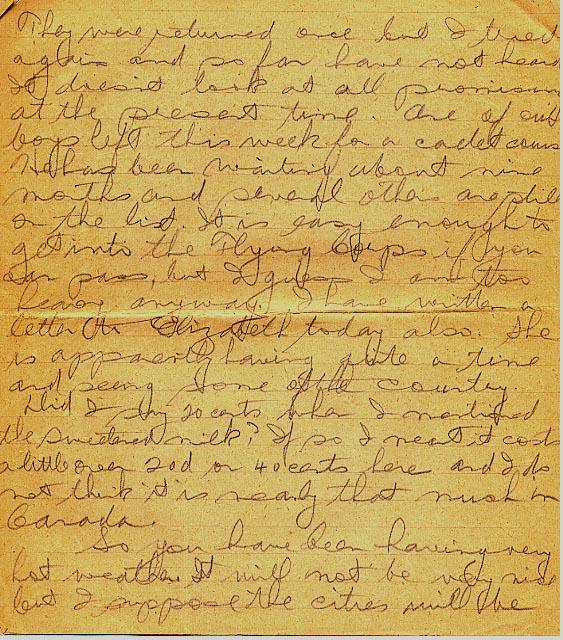 They were returned once but I tried
again and so far have not heard
It doesn't look at all promising
at the present time. One of our
boys left this week for a cadet course
He has been waiting about nine
months and several others are still
on the list. It is easy enough to
get into the Flying Corps if you
can pass, but I guess I am too
heavy anyway. I have written a
letter to Elizabeth today also. She
is apparently having quite a time
and seeing some of the country.
Did I say 20 cents when I mentioned
the sweetened milk? If so I meant it costs
a little over 20d or 40 cents here and I do
not think it is nearly that much in
Canada.
So you have been having very
hot weather. It will not be very nice
but I suppose the cities will be